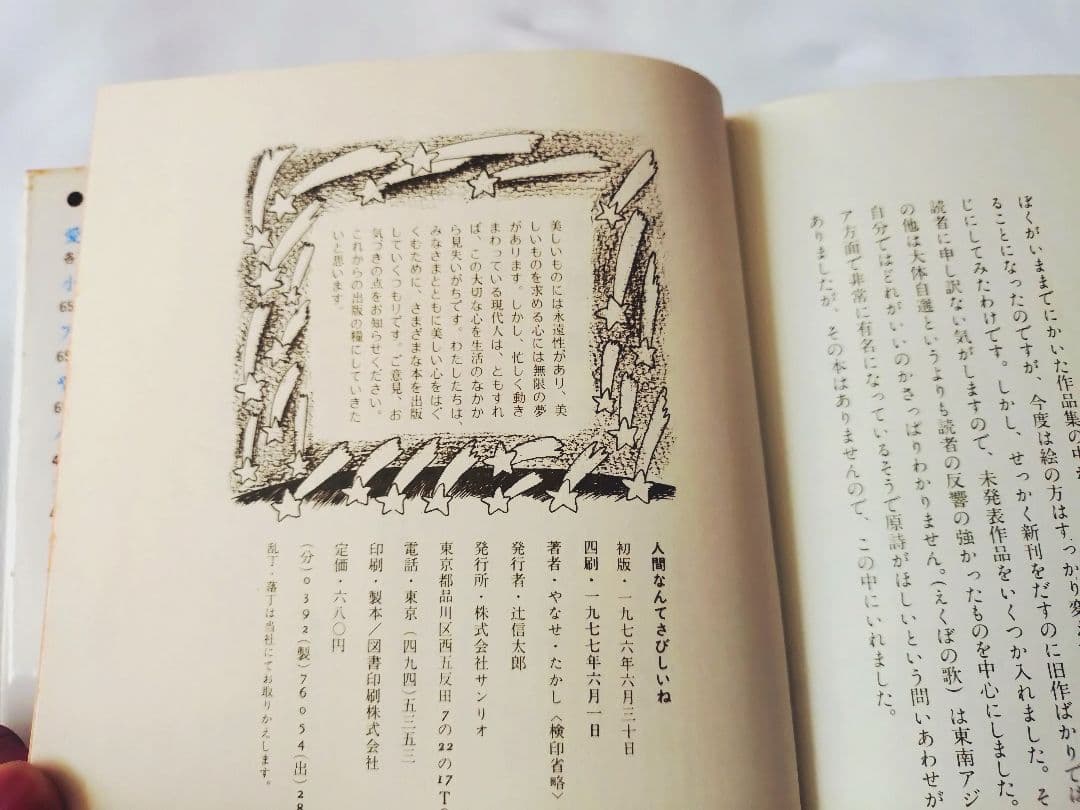 ぼくがいままでにかいた作品集の中
ることになったのですが、今度は絵の方はすっかり変
じにしてみたわけです。しかし、せっかく新刊をだすのに旧作ばかりでは
読者に申し訳ない気がしますので、未発表作品をいくつか入れました。そ
の他は大体自選というよりも読者の反響の強かったものを中心にしました。
自分ではどれがいいのかさっぱりわかりません。(えくぼの歌)は東南アジ
ア方面で非常に有名になっているそうで原詩がほしいという問いあわせが
ありましたが、その本はありませんので、この中にいれました。
美しいものには永遠性があり、美
しいものを求める心には無限の夢
があります。しかし、忙しく動き
まわっている現代人は、ともすれ
ば、この大切な心を生活のなかか
ら見失いがちです。わたしたちは、
みなさまとともに美しい心をはぐ
くむために、さまざまな本を出版
していくつもりです。ご意見、お
気づきの点をお知らせください。
これからの出版の糧にしていきた
いと思います。
人間なんてさびしいね
初版・一九七六年六月三十日
四刷・一九七七年六月一日
著者・やなせ・たかし〈検印省略〉
発行者・辻信太郎
発行所・株式会社サンリオ
東京都品川区西五反田7の22の17T
電話・東京(四九四)五三五三
印刷・製本/図書印刷株式会社
定価・六八〇円
(分)0392(製)76054(出)28
乱丁・落丁は当社にてお取りかえします。
愛
各
小
65
65